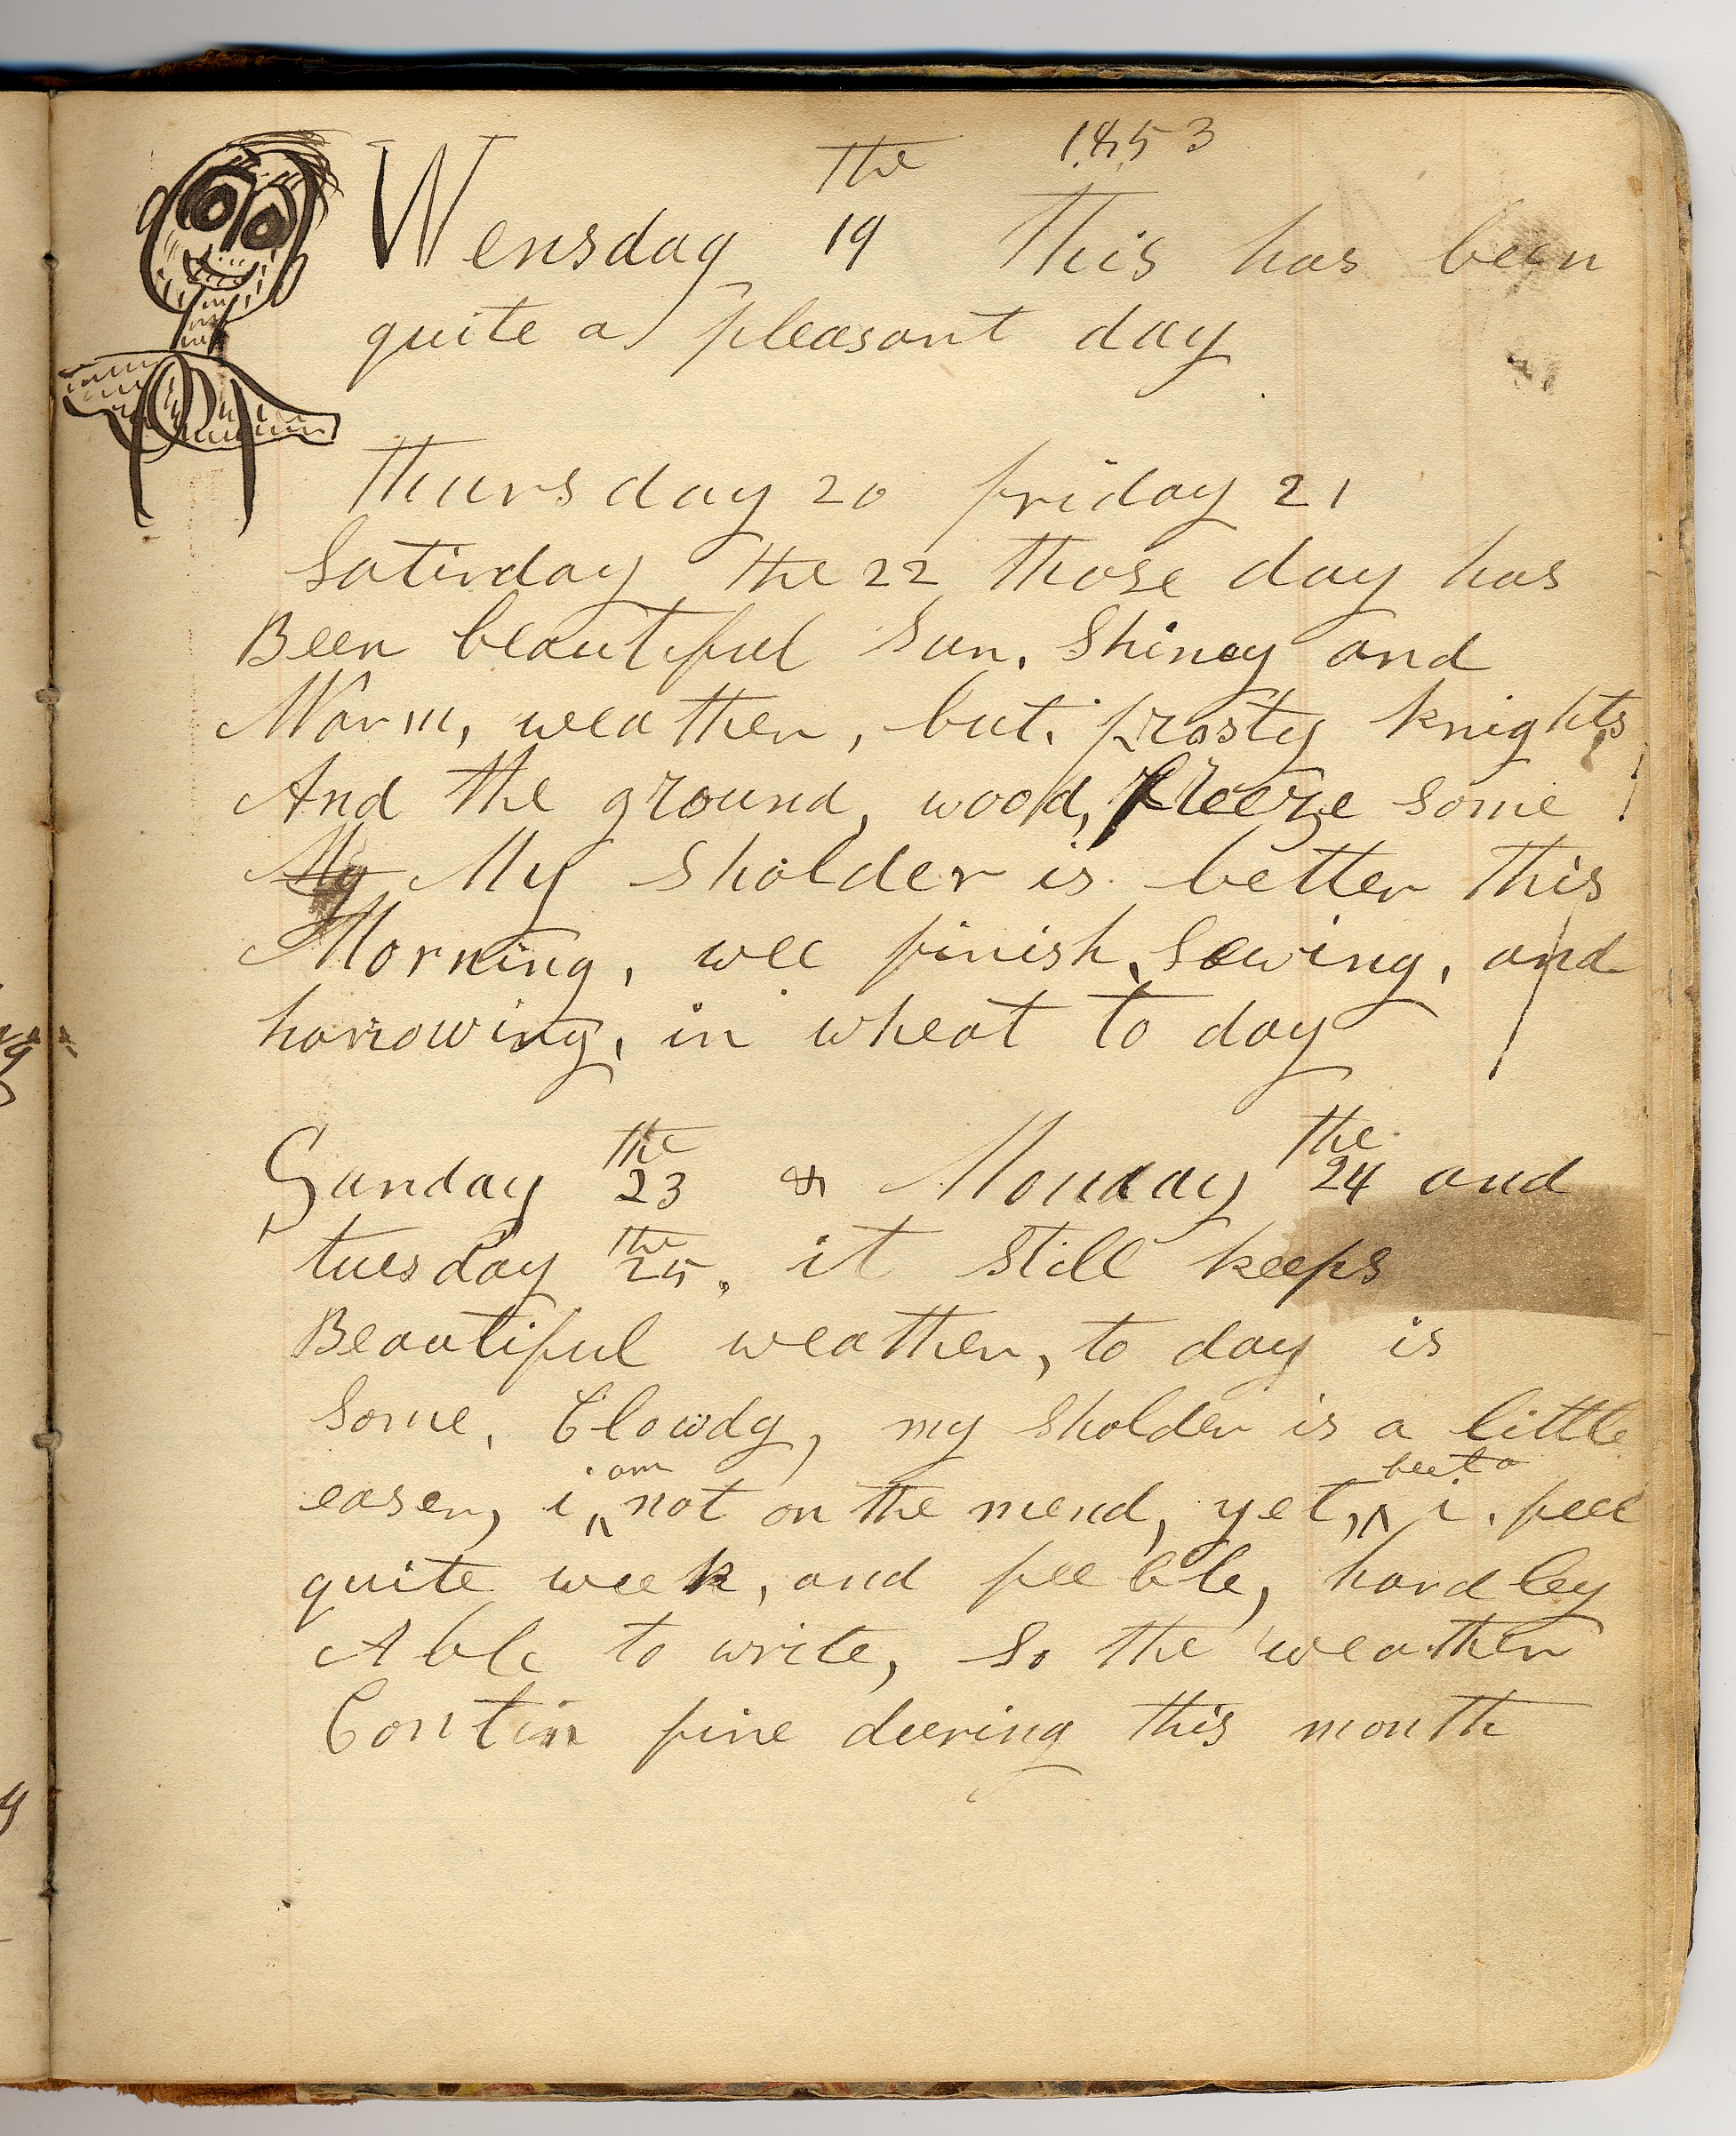 1853
Wensday the 19 This has been
quite a pleasant day
Thursday 20 friday 21
Saturday the 22 those day has
Been beautiful Sun. Shiney and
Warm, weather, but. frosty knights
And the ground, wood, freeze some
My My Sholder is better this
Morning, wee finish, Sowing, and
harrowing, in wheat to day
Sunday the 23 & Monday the 24 and
tuesday the 25, it still keeps
Beautiful weather, to day is
some, Clowdy, my sholder is a little
easer, i am not on the mend, yet, but i. feel
quite week, and feeble, hardley
Able to write, so the weather
Contin fine deering this month